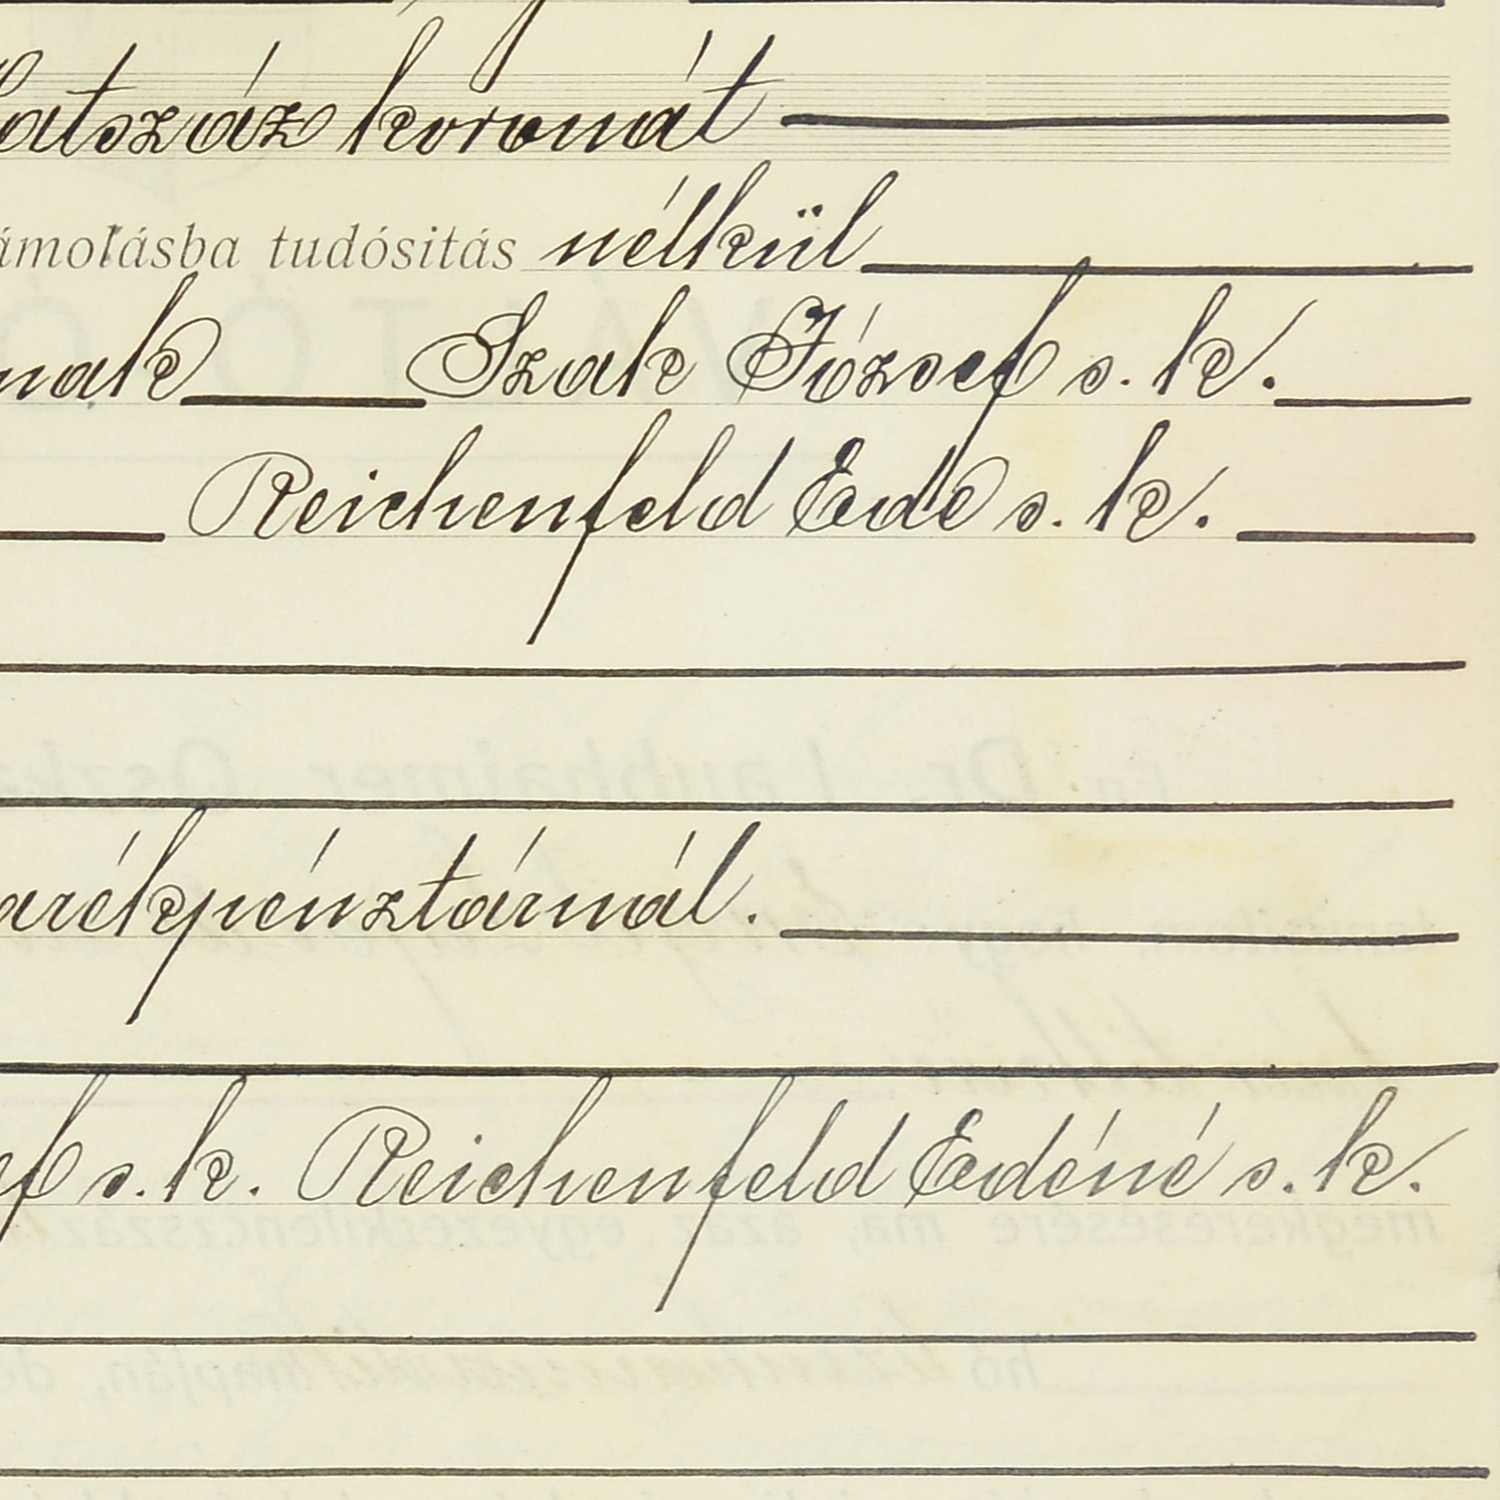 atszáz koronát
ámolásba tudósitás nélkül
nak Szak József s. k.
Reichenfeld Ede s. k.
arékpénztárnál.
ef s. k. Reichenfeld Edéné s. k.